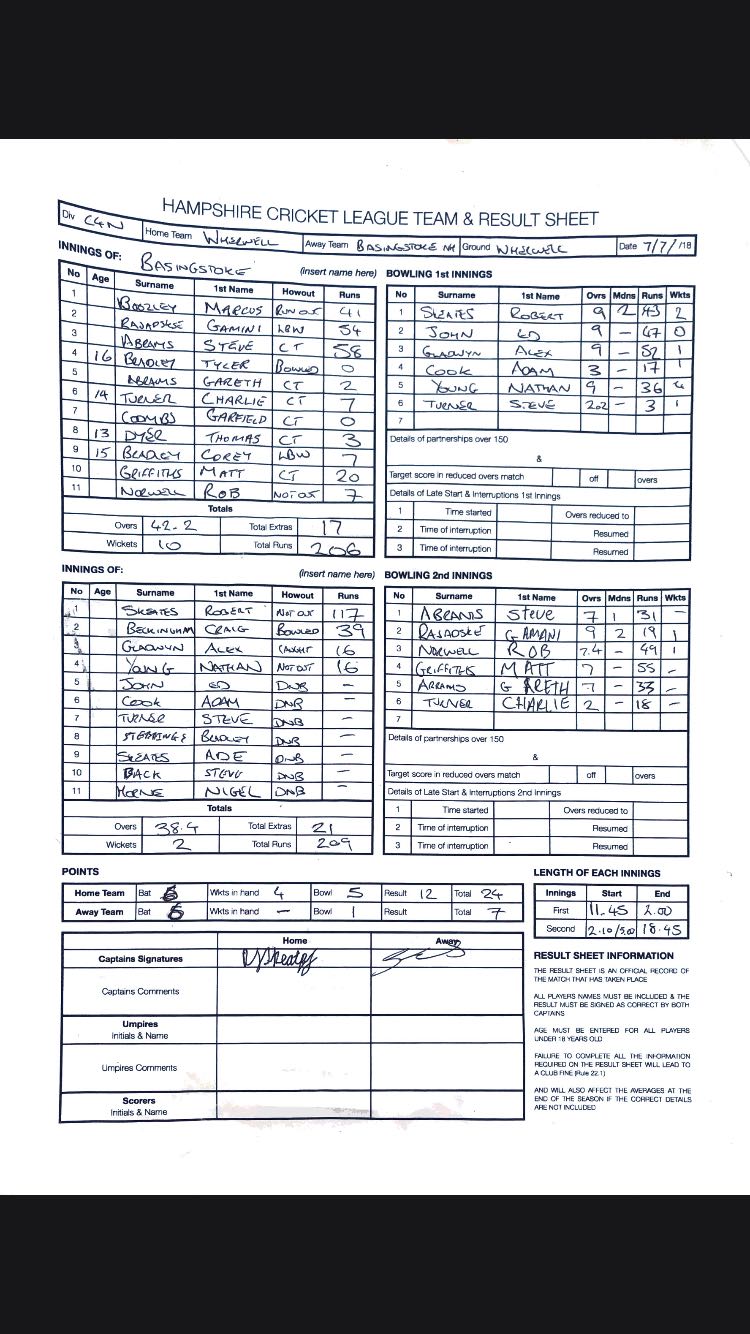 HAMPSHIRE CRICKET LEAGUE TEAM & RESULT SHEET
Div C4N Home Team WHERWELL Away Team BASINGSTOKE NH Ground WHERWELL Date 7/7/18
INNINGS OF: BASINGSTOKE (insert name here)
No Age Surname 1st Name Howout Runs
1 BOOZLEY MARCUS RUN OUT 41
2 RAJAPSKSE GAMINI LBW 54
3 ABRAMS STEVE CT 58
4 16 BRADLEY TYLER BOWLED 0
5 ABRAMS GARETH CT 2
6 14 TURNER CHARLIE CT 7
7 COOMBS GARFIELD CT 0
8 13 DYER THOMAS CT 3
9 15 BRADLEY COREY LBW 7
10 GRIFFITHS MATT CT 20
11 NORWELL ROB NOT OUT 7
Totals
Overs 42.2 Total Extras 17
Wickets 10 Total Runs 206
BOWLING 1ST INNINGS
No Surname 1st Name Ovrs Mdns Runs Wkts
1 SKEATES ROBERT 9 2 43 2
2 JOHN ED 9 – 47 0
3 GLADWYN ALEX 9 – 52 1
4 COOK ADAM 3 – 17 1
5 YOUNG NATHAN 9 – 36 4
6 TURNER STEVE 2.02 – 3 1
7
Details of partnerships over 150
&
Target score in reduced overs match off overs
Details of Late Start & Interruptions 1st Innings
1 Time started Overs reduced to
2 Time of interruption Resumed
3 Time of interruption Resumed
INNINGS OF: (insert name here)
No Age Surname 1st Name Howout Runs
1 SKEATES ROBERT NOT OUT 117
2 BECKINGHAM CRAIG BOWLED 39
3 GLADWYN ALEX CAUGHT 16
4 YOUNG NATHAN NOT OUT 16
5 JOHN ED DNB –
6 COOK ADAM DNB –
7 TURNER STEVE DNB –
8 STEBBINGS BRADLEY DNB –
9 SKEATES ADE DNB –
10 BACK STEVE DNB –
11 HORNE NIGEL DNB –
Totals
Overs 38.4 Total Extras 21
Wickets 2 Total Runs 209
BOWLING 2ND INNINGS
No Surname 1st Name Ovrs Mdns Runs Wkts
1 ABRAMS Steve 7 1 31 –
2 RAJAPSKE GAMANI 9 2 19 1
3 NORWELL ROB 7.4 – 49 1
4 GRIFFITHS MATT 7 – 55 –
5 ABRAMS GARETH 7 – 33 –
6 TURNER CHARLIE 2 – 18 –
7
Details of partnerships over 150
&
Target score in reduced overs match off overs
Details of Late Start & Interruptions 2nd Innings
1 Time started Overs reduced to
2 Time of interruption Resumed
3 Time of interruption Resumed
POINTS
Home Team Bat Wkts in hand 4 Bowl 5 Result 12 Total 24
Away Team Bat Wkts in hand – Bowl 1 Result Total 7
LENGTH OF EACH INNINGS
Innings Start End
First 11.45 2.00
Second 2.10/5.00 18.45
Home Away
Captains Signatures
Captains Comments
Umpires
Initials & Name
Umpires Comments
Scorers
Initials & Name
RESULT SHEET INFORMATION
THE RESULT SHEET IS AN OFFICIAL RECORD OF
THE MATCH THAT HAS TAKEN PLACE
ALL PLAYERS NAMES MUST BE INCLUDED & THE
RESULT MUST BE SIGNED AS CORRECT BY BOTH
CAPTAINS
AGE MUST BE ENTERED FOR ALL PLAYERS
UNDER 18 YEARS OLD
FAILURE TO COMPLETE ALL THE INFORMATION
REQUIRED ON THE RESULT SHEET WILL LEAD TO
A CLUB FINE (Rule 22.1)
AND WILL ALSO AFFECT THE AVERAGES AT THE
END OF THE SEASON IF THE CORRECT DETAILS
ARE NOT INCLUDED